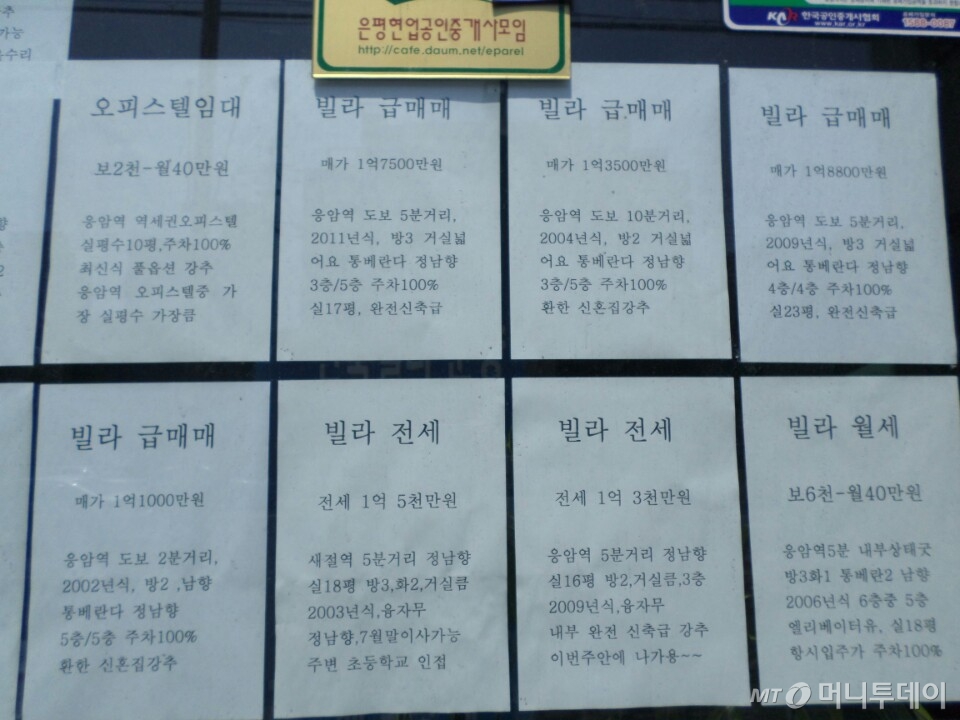 은평현업공인중개사모임
http://cafe.daum.net/eparel
KAR 한국공인중개사협회
www.kar.or.kr
가능
수리
오피스텔임대
보2천-월40만원
응암역 역세권오피스텔
실평수10평,주차100%
최신식 풀옵션 강추
응암역 오피스텔중 가
장 실평수 가장큼
빌라 급매매
매가 1억7500만원
응암역 도보 5분거리,
2011년식, 방3 거실넓
어요 통베란다 정남향
3층/5층 주차100%
실17평, 완전신축급
빌라 급.매매
매가 1억3500만원
응암역 도보 10분거리,
2004년식, 방2 거실넓
어요 통베란다 정남향
3층/5층 주차100%
환한 신혼집강추
빌라 급매매
매가 1억8800만원
응암역 도보 5분거리,
2009년식, 방3 거실넓
어요 통베란다 정남향
4층/4층 주차100%
실23평, 완전신축급
빌라 급매매
매가 1억1000만원
응암역 도보 2분거리,
2002년식, 방2 ,남향
통베란다 정남향
5층/5층 주차100%
환한 신혼집강추
빌라 전세
전세 1억 5천만원
새절역 5분거리 정남향
실18평 방3,화2,거실큼
2003년식,융자무
정남향,7월말이사가능
주변 초등학교 인접
빌라 전세
전세 1억 3천만원
응암역 5분거리 정남향
실16평 방2,거실큼,3층
2009년식,융자무
내부 완전 신축급 강추
이번주안에 나가용~~
빌라 월세
보6천-월40만원
응암역5분 내부상태굿
방3화1 통베란2 남향
2006년식 6층중 5층
엘리베이터유, 실18평
항시입주가 주차100%
MT 머니투데이